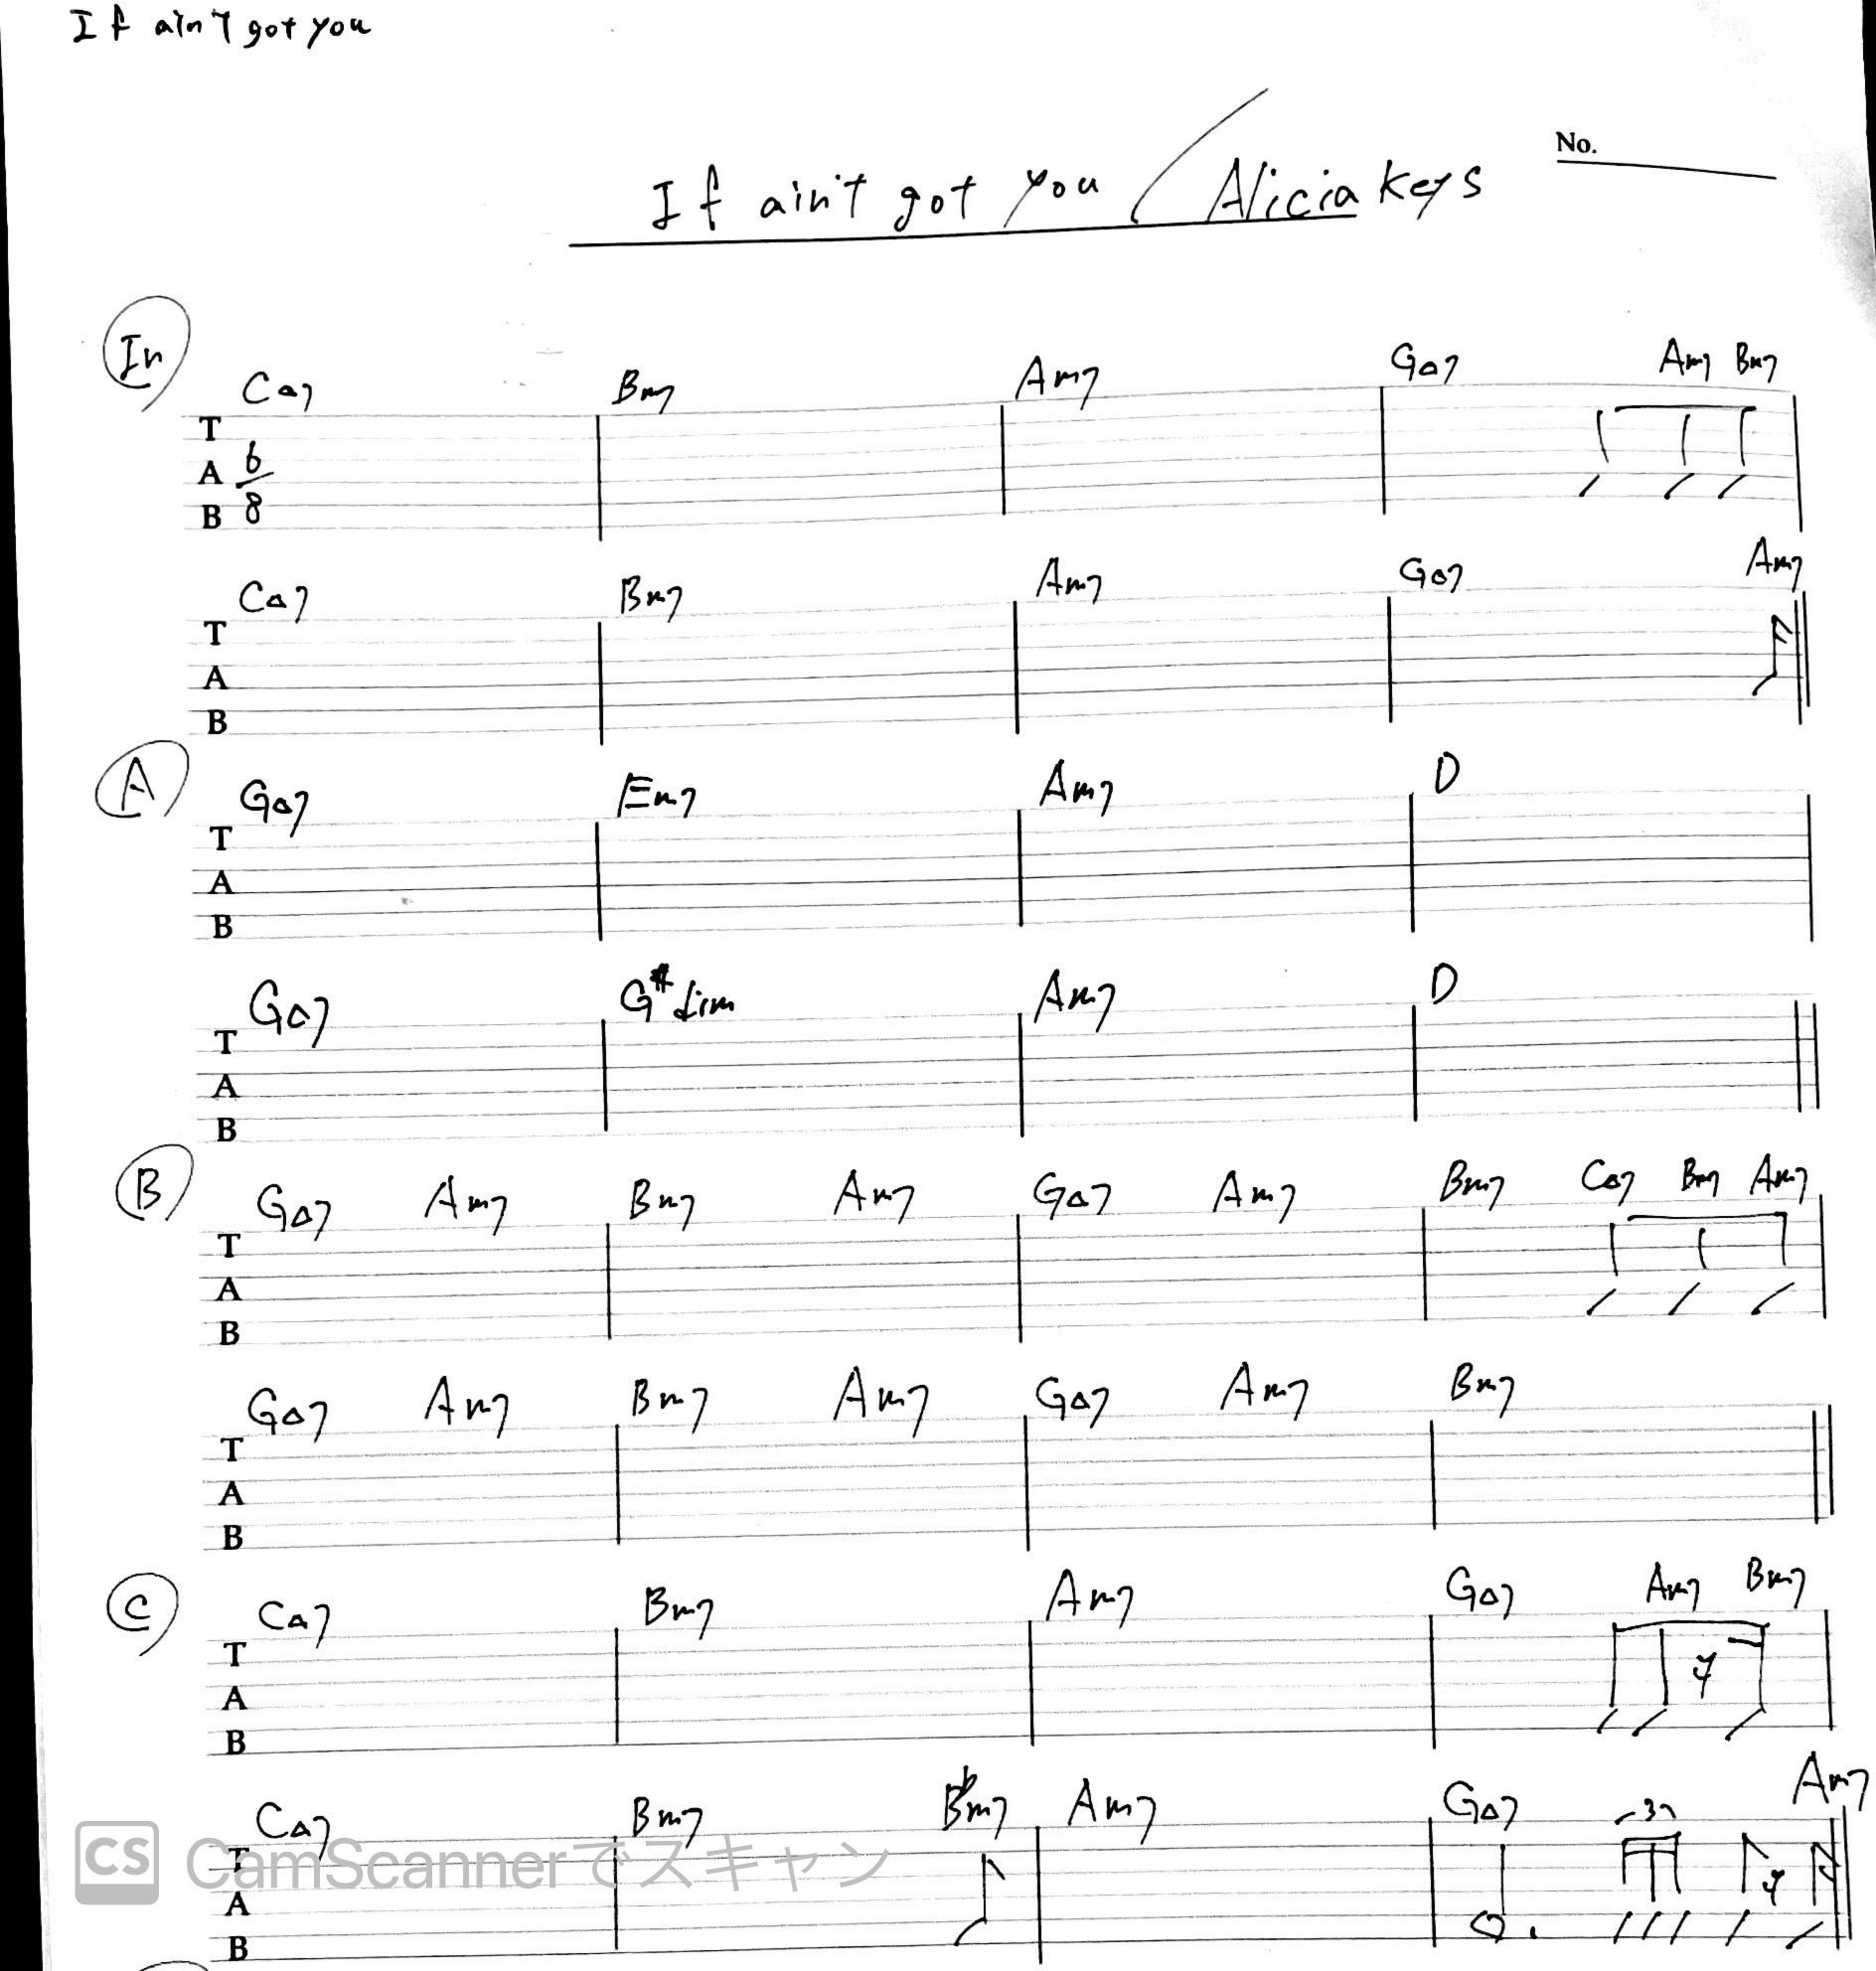 If ain't got you
No.
If ain't got you / Alicia Keys
In
C△7 Bm7 Am7 G△7 Am7 Bm7
T
A 6/8
B
C△7 Bm7 Am7 G△7 Am7
T
A
B
A
G△7 Em7 Am7 D
T
A
B
G△7 G#dim Am7 D
T
A
B
B
G△7 Am7 Bm7 Am7 G△7 Am7 Bm7 C△7 Bm7 Am7
T
A
B
G△7 Am7 Bm7 Am7 G△7 Am7 Bm7
T
A
B
C
C△7 Bm7 Am7 G△7 Am7 Bm7
T
A
B
C△7 Bm7 B♭m7 Am7 G△7 3 Am7
CS CamScannerでスキャン
T
A
B